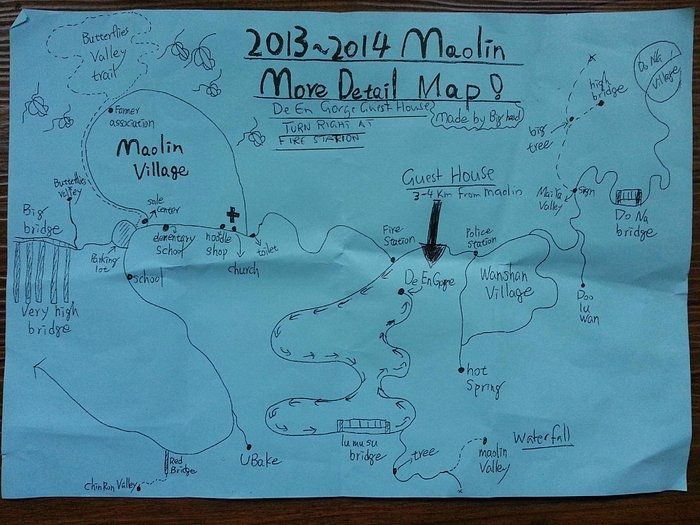 2013~2014 Maolin
More Detail Map!
De En Gorge Guest House
TURN RIGHT AT
FIRE STATION
(Made by Big head)
Butterflies
Valley
trail
Former
association
Maolin
Village
Butterflies
valley
Big
bridge
Very high
bridge
Parking
lot
sale
center
elementary
school
noodle
shop
church
toilet
school
Red
Bridge
ChinRon Valley
UBake
Guest House
3-4 km from maolin
Fire
Station
De En Gorge
Police
Station
Wanshan
Village
hot
Spring
lumusu
bridge
tree
maolin
Valley
Waterfall
Do Na
Village
high
bridge
big
tree
Maiya
Valley
sign
Do Na
bridge
Doo
lu
wan